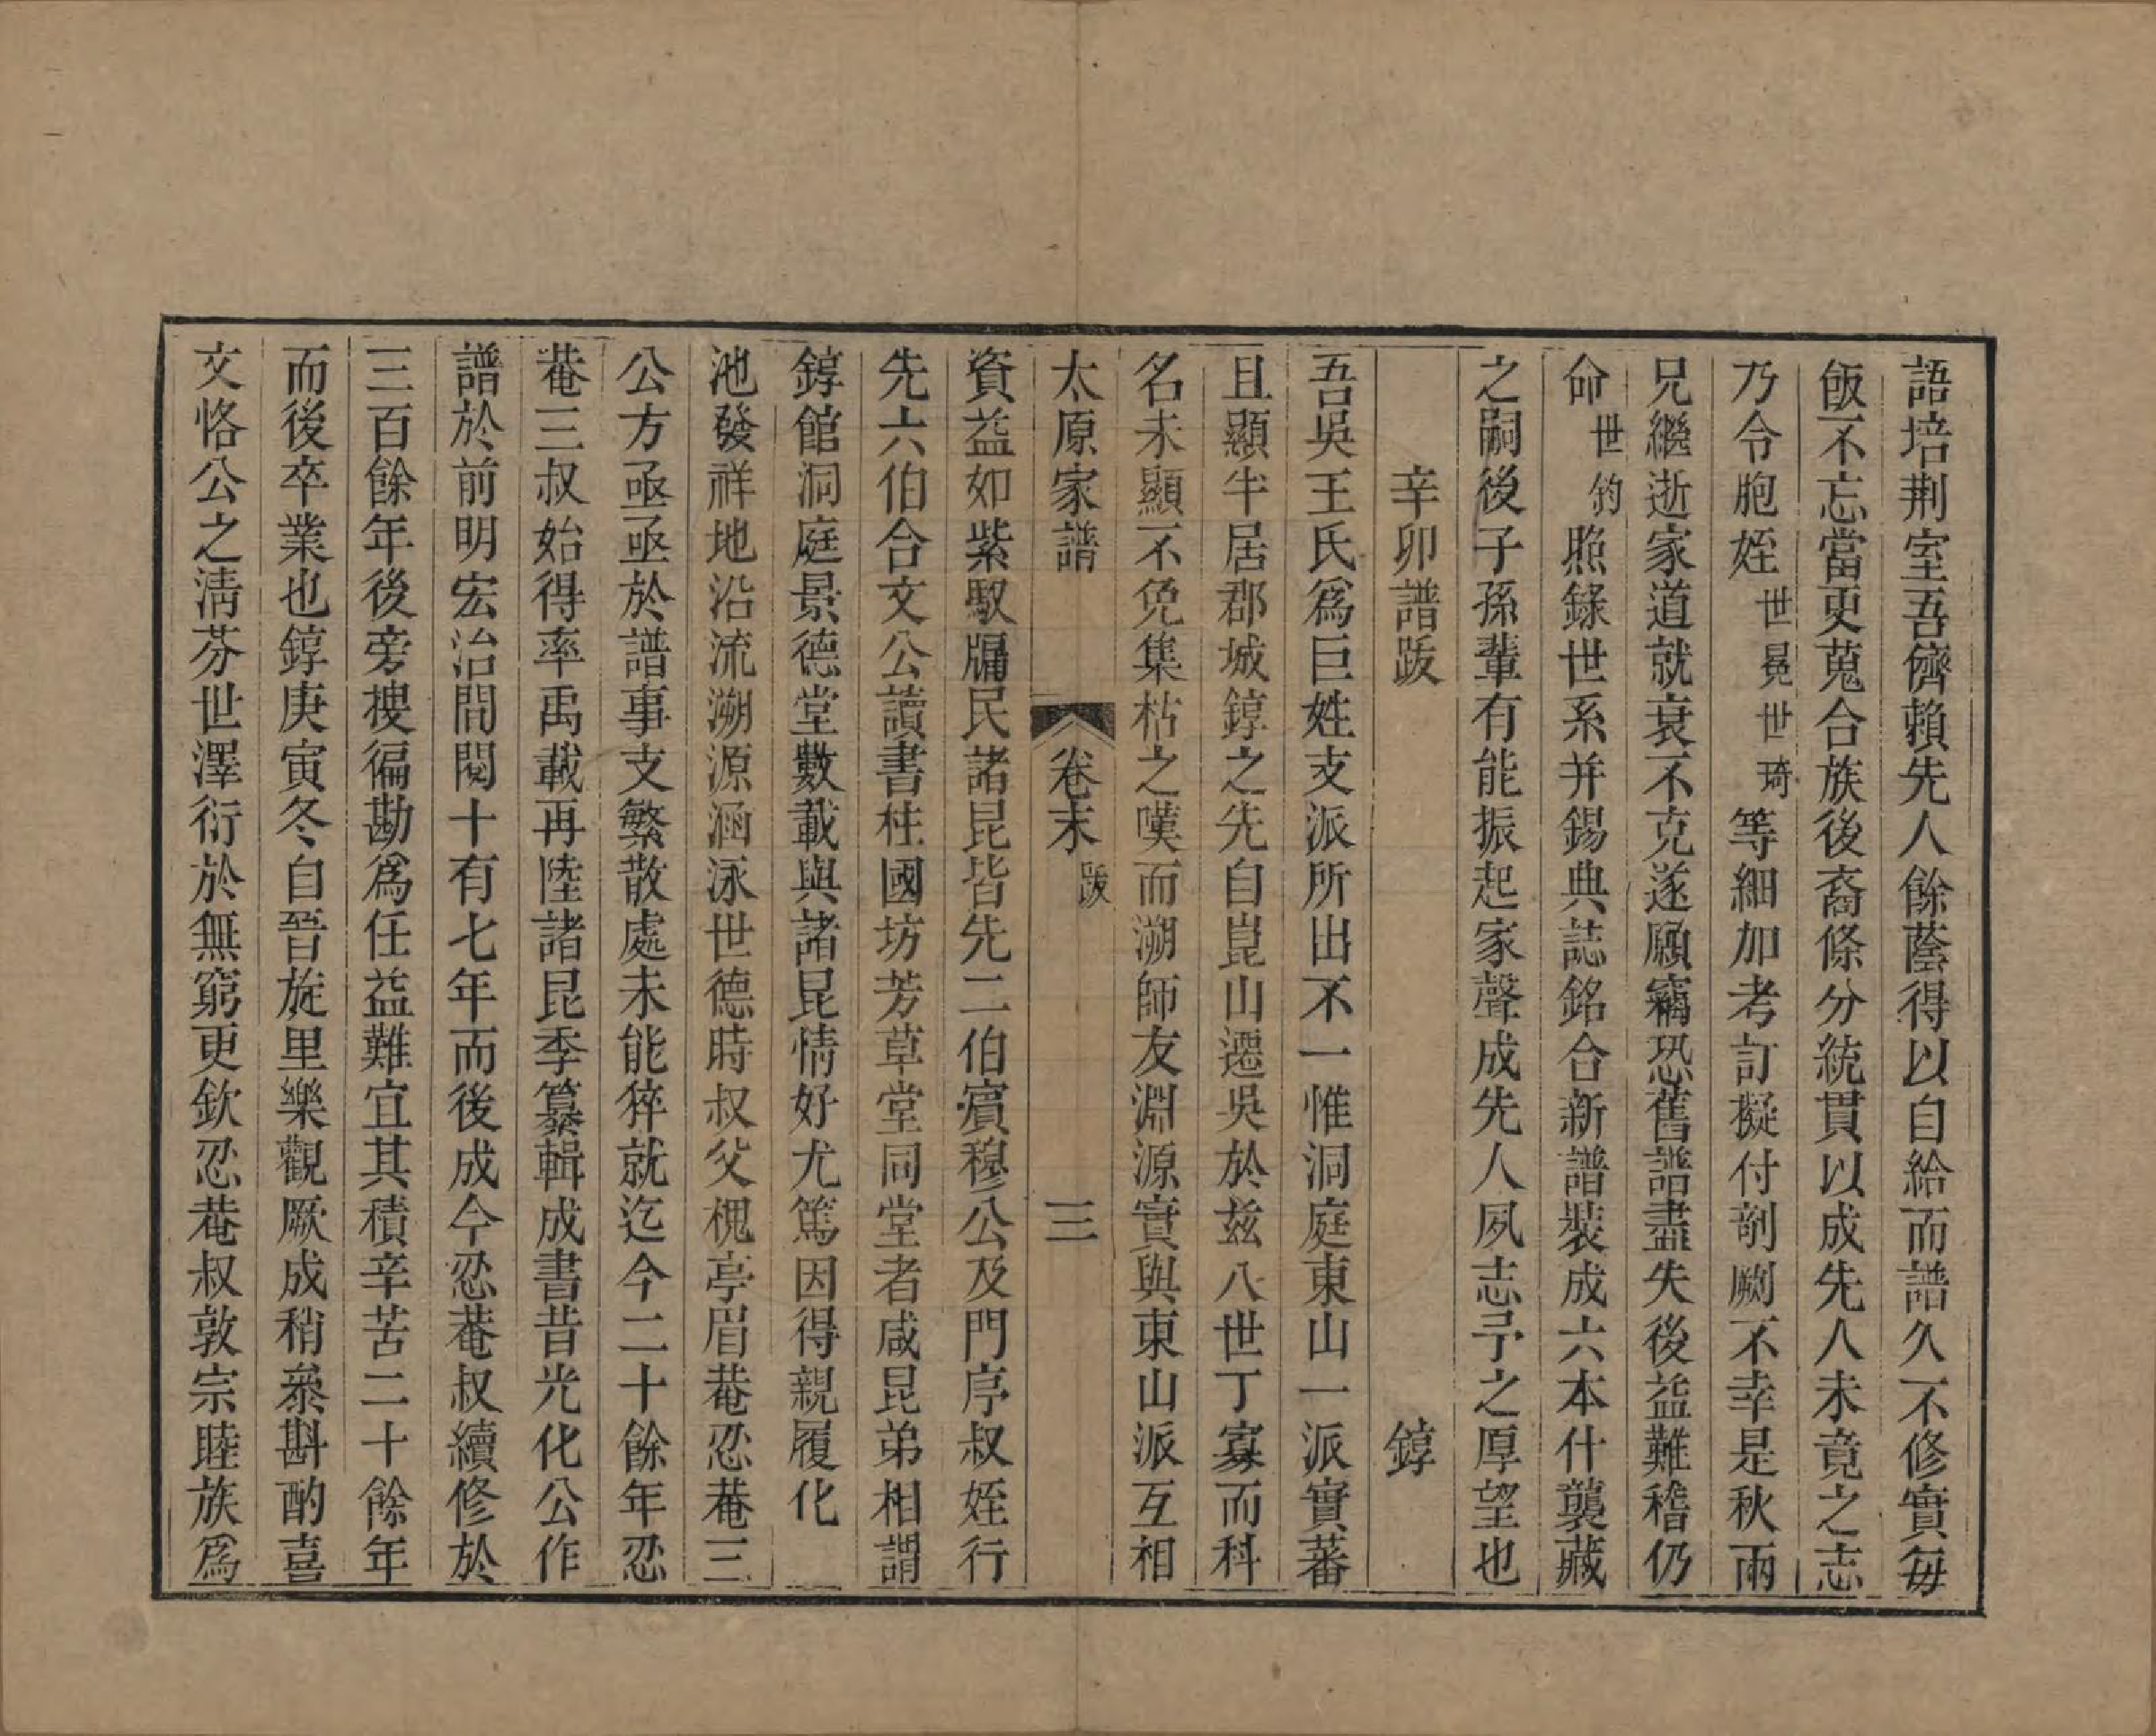 語培荆室吾儕賴先人餘蔭得以自給而譜久不修實每
飯不忘當更蒐合族後裔條分統貫以成先人未竟之志
乃令胞姪世晃世琦等細加考訂擬付剞劂不幸是秋兩
兄繼逝家道就衰不克遂願竊恐舊譜盡失後益難稽仍
命世鈞照錄世系并錫典誌銘合新譜裝成六本什襲藏
之嗣後子孫輩有能振起家聲成先人夙志予之厚望也
辛卯譜跋　錞
吾吳王氏爲巨姓支派所出不一惟洞庭東山一派實蕃
且顯半居郡城錞之先自崑山遷吳於兹八世丁寡而科
名未顯不免集枯之嘆而溯師友淵源實與東山派互相
太原家譜　卷末　跋　三
資益如紫馭牖民諸昆皆先二伯賓穆公及門序叔姪行
先六伯合文公讀書柱國坊芳草堂同堂者咸昆弟相謂
錞館洞庭景德堂數載與諸昆情好尤篤因得親履化
池發祥地沿流溯源涵泳世德時叔父槐亭眉菴忍菴三
公方亟亟於譜事支繁散處未能猝就迄今二十餘年忍
菴三叔始得率禹載再陸諸昆季纂輯成書昔光化公作
譜於前明宏治間閱十有七年而後成今忍菴叔續修於
三百餘年後旁搜徧勘爲任益難宜其積辛苦二十餘年
而後卒業也錞庚寅冬自晉旋里樂觀厥成稍叅斟酌喜
文恪公之淸芬世澤衍於無窮更欽忍菴叔敦宗睦族爲